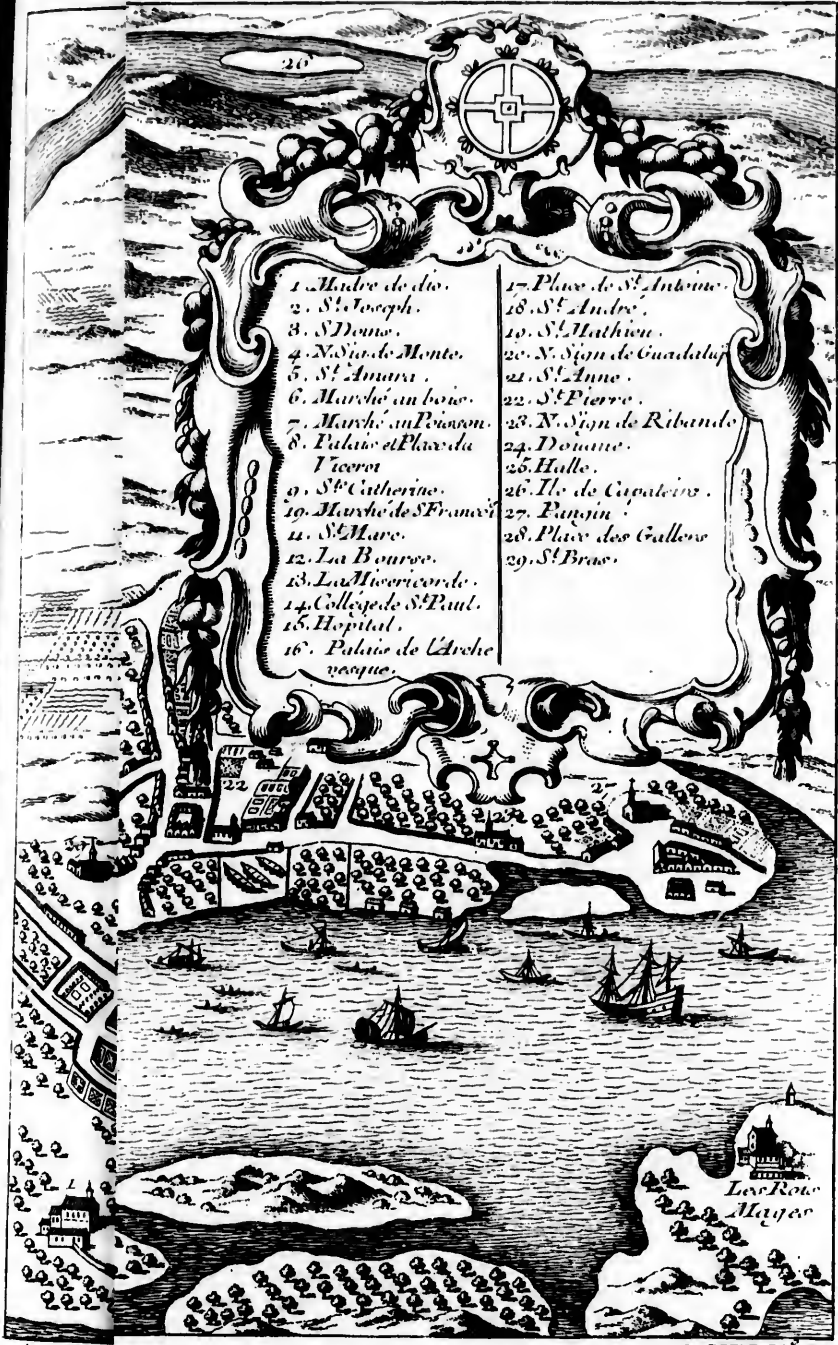 26
1. Madre de dio.
2. St. Joseph.
3. S Doms.
4. N. Sig. de Monte.
5. St. Amara.
6. Marché au bois.
7. Marché au Poisson.
8. Palais et Place du
Viceroi
9. Ste Catherine.
19. Marché de S Francoi
11. St. Marc.
12. La Bourse.
13. La Misericorde.
14. Collége de St. Paul.
15. Hopital.
16. Palais de l'Arche
vesque.
17. Place de St. Antoine.
18. St. André.
19. St. Mathieu.
20. N. Sign de Guadalup
21. St. Anne.
22. St. Pierre.
23. N. Sign de Ribande
24. Douane.
25. Halle.
26. Ile de Capateiro.
27. Pangin
28. Place des Gallers
29. St. Bras.
22
23
2
1
Les Rois
Mages